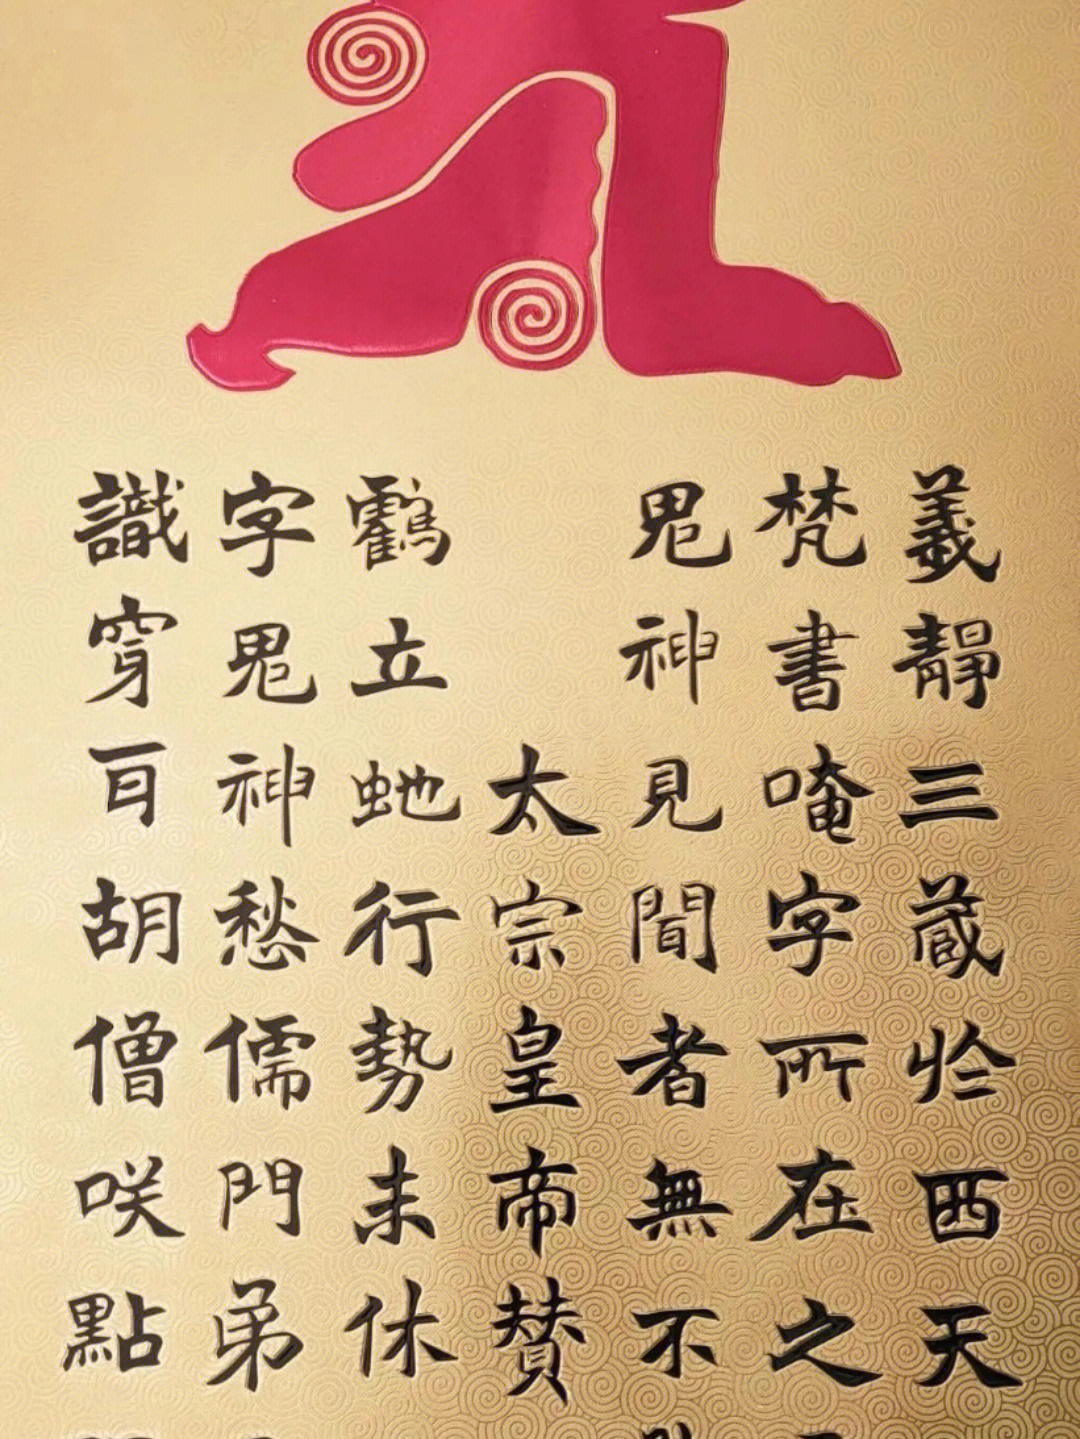 義靜三藏於西天
梵書唵字所在之
鬼神見聞者無不
太宗皇帝贊
鶴立虵行勢未休
字鬼神愁儒門弟
識穿耳胡僧咲點